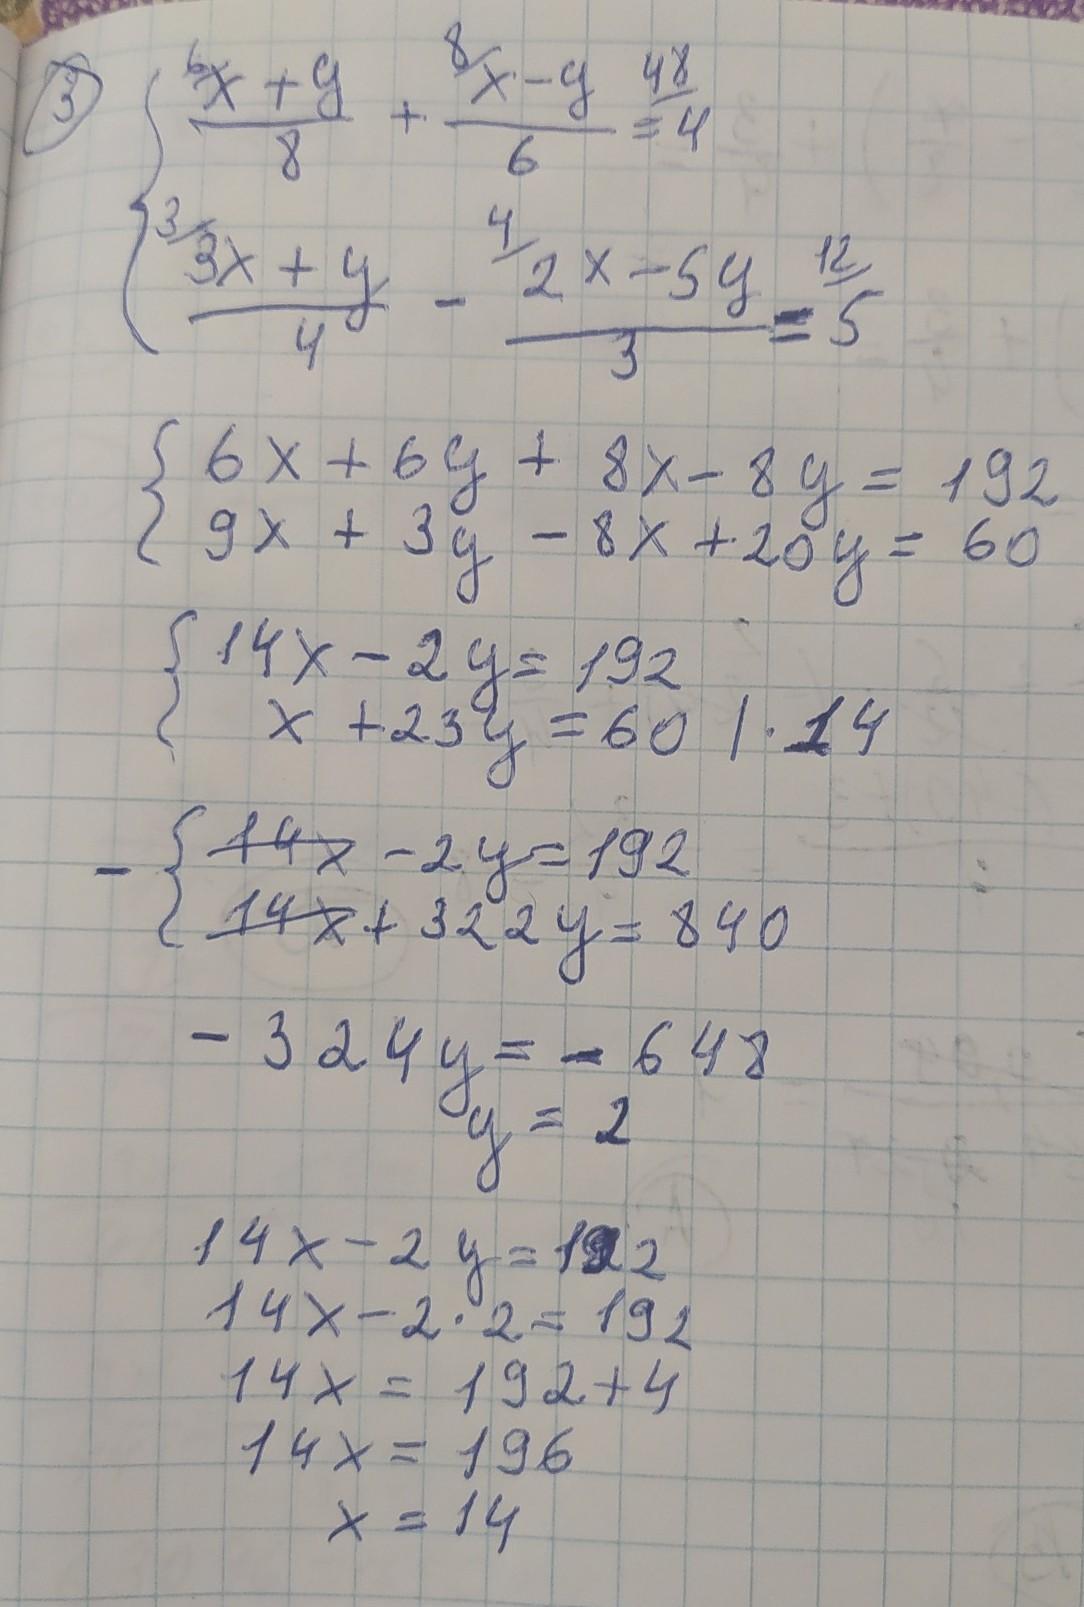 3
⁶/x + y / 8 + ⁸/x - y / 6 = ⁴⁸/4
³/3x + y / 4 - ⁴/2x - 5y / 3 = ¹²/5
6x + 6y + 8x - 8y = 192
9x + 3y - 8x + 20y = 60
14x - 2y = 192
x + 23y = 60 | · 14
- { 14x - 2y = 192
14x + 322y = 840
- 324y = - 648
y = 2
14x - 2y = 192
14x - 2 · 2 = 192
14x = 192 + 4
14x = 196
x = 14